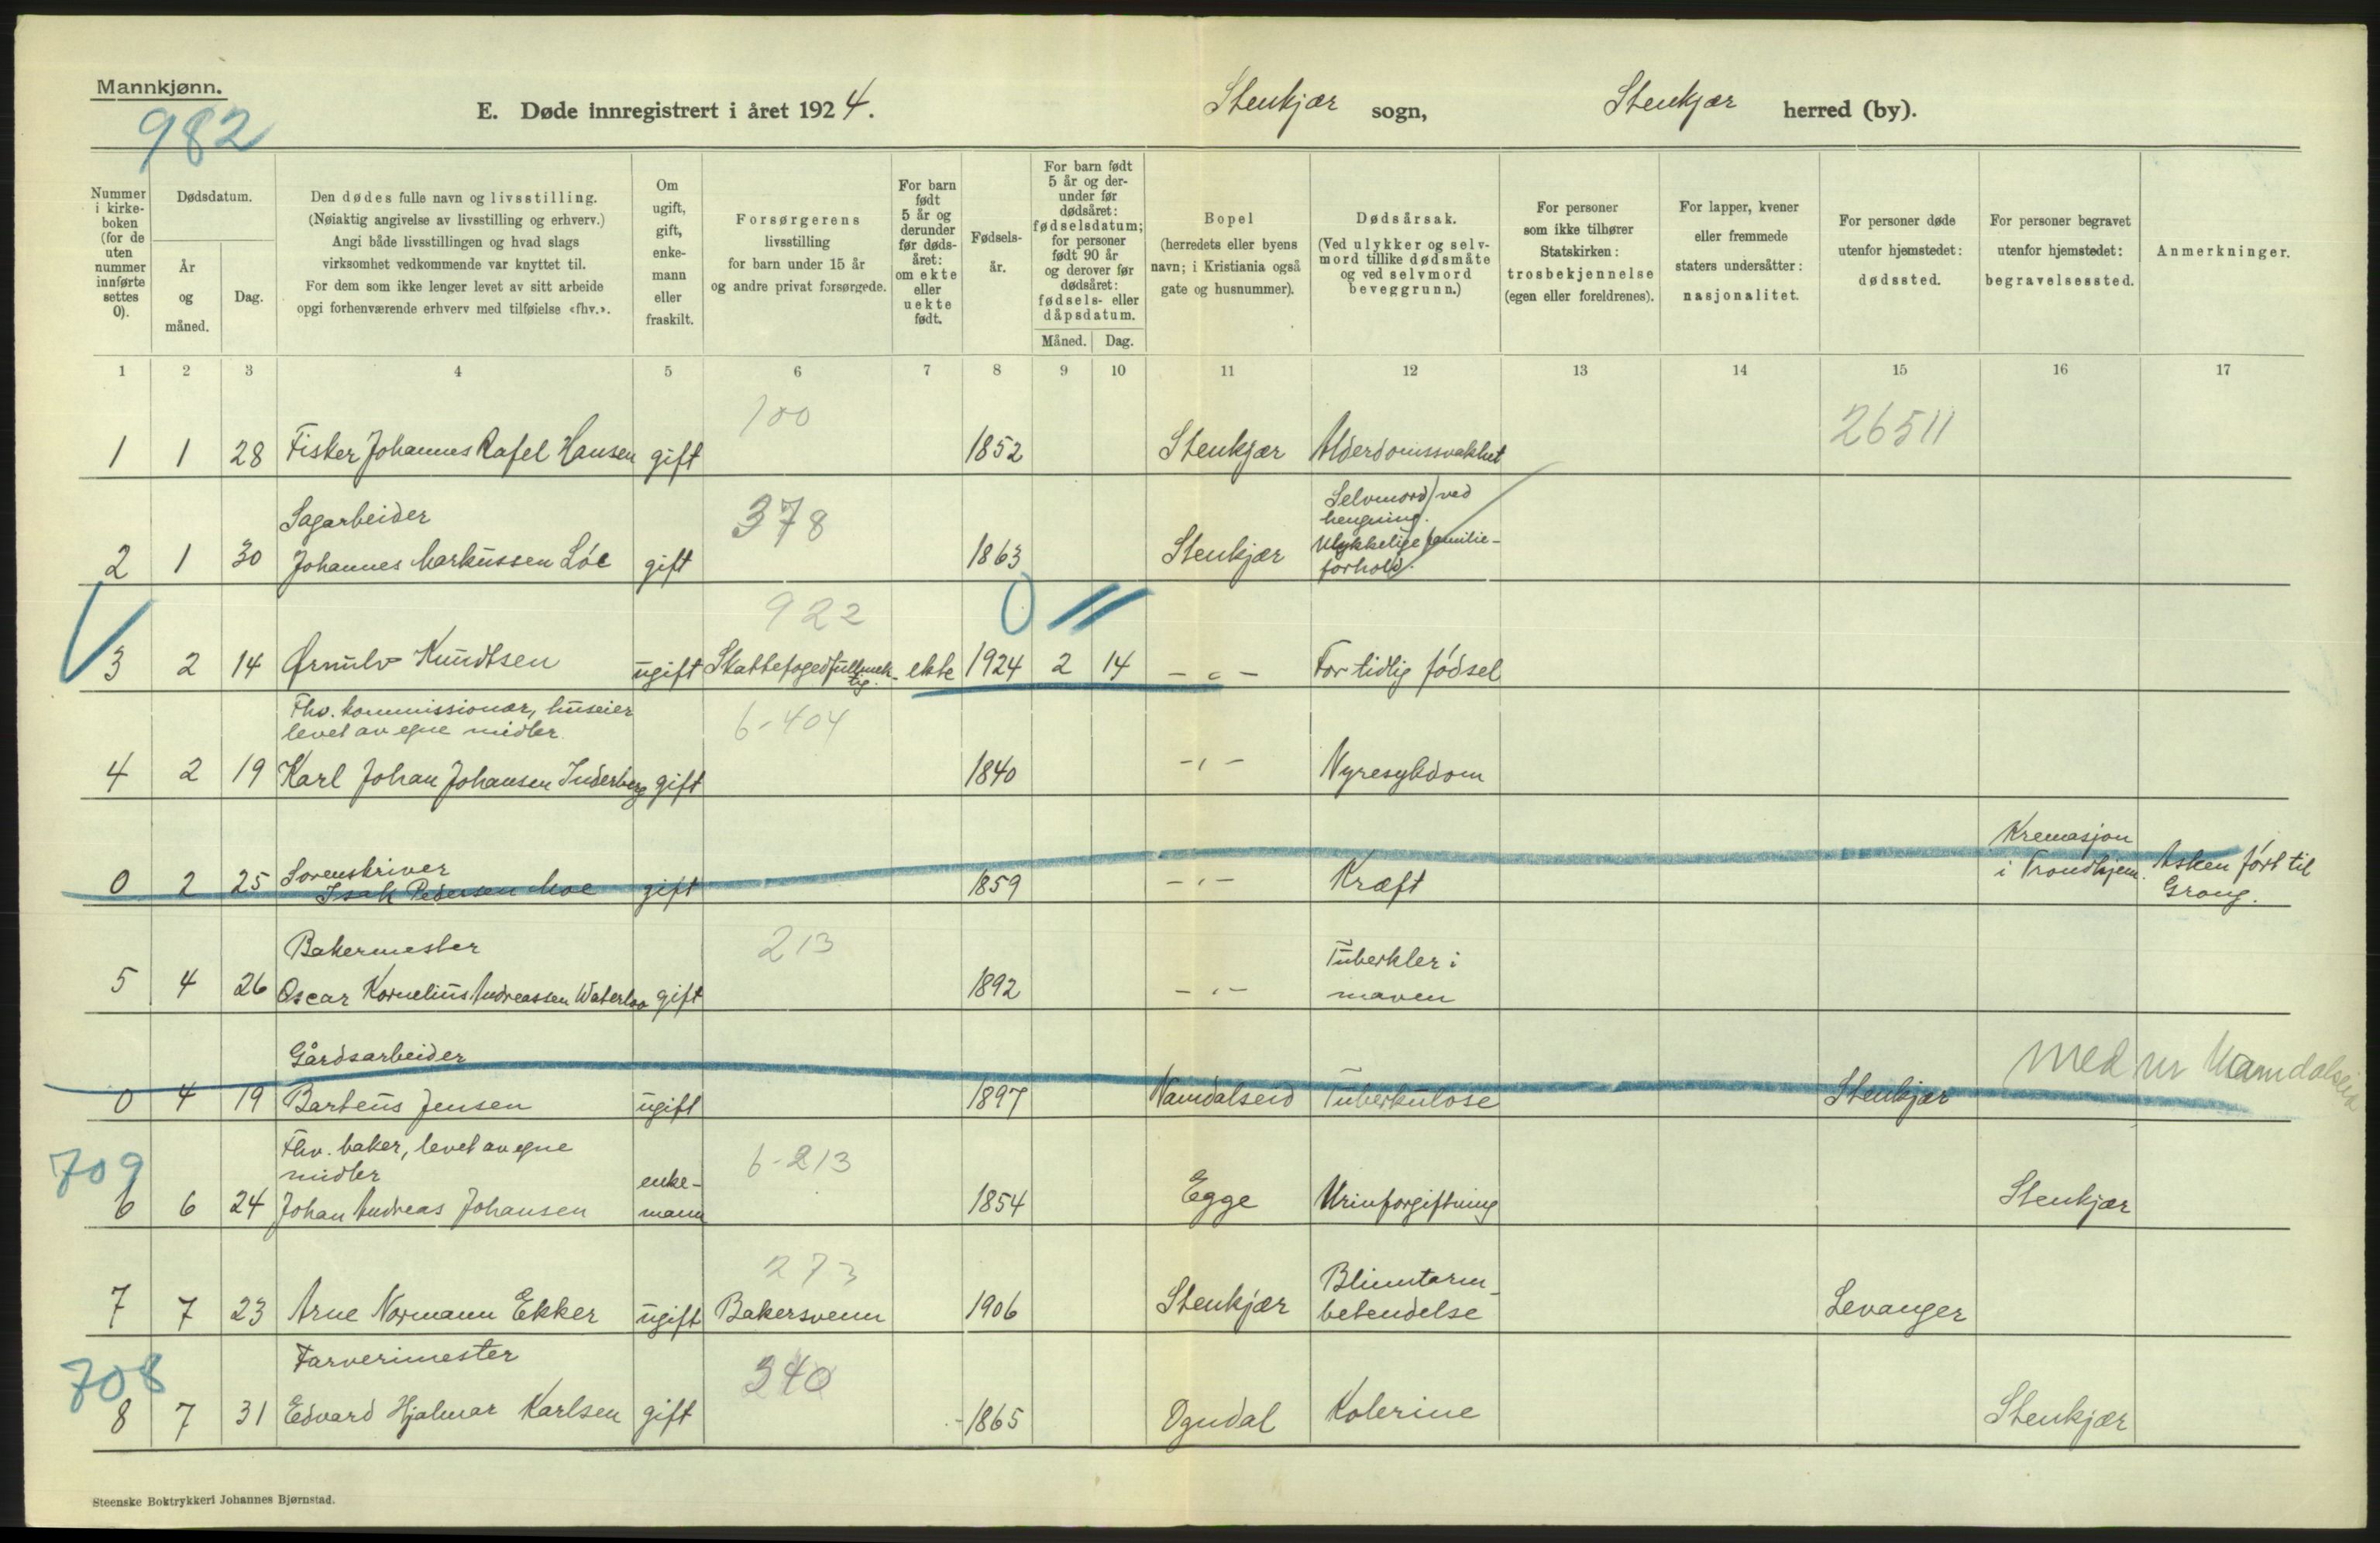 Mannkjønn.
982
E. Døde innregistrert i året 1924.
Stenkjær sogn,
Stenkjær herred (by).
Nummer i kirke-boken (for de uten nummer innførte settes 0).
Dødsdatum.
År og måned.
Dag.
Den dødes fulle navn og livsstilling.
(Nøiaktig angivelse av livsstilling og erhverv.)
Angi både livsstillingen og hvad slags
virksomhet vedkommende var knyttet til.
For dem som ikke lenger levet av sitt arbeide
opgi forhenværende erhverv med tilføielse «fhv.».
Om ugift, gift, enke-mann eller fraskilt.
Forsørgerens
livsstilling
for barn under 15 år
og andre privat forsørgede.
For barn født 5 år og derunder før døds-året: om ekte eller uekte født.
Fødsels-år.
For barn født 5 år og der-under før dødsåret: fødselsdatum; for personer født 90 år og derover før dødsåret: fødsels- eller dåpsdatum.
Måned.
Dag.
Bopel
(herredets eller byens
navn; i Kristiania også
gate og husnummer).
Dødsårsak.
(Ved ulykker og selv-
mord tillike dødsmåte
og ved selvmord
beveggrunn.)
For personer
som ikke tilhører
Statskirken:
trosbekjennelse
(egen eller foreldrenes).
For lapper, kvener
eller fremmede
staters undersåtter:
nasjonalitet.
For personer døde
utenfor hjemstedet:
dødssted.
For personer begravet
utenfor hjemstedet:
begravelsessted.
Anmerkninger.
1 2 3 4 5 6 7 8 9 10 11 12 13 14 15 16 17
100
26511
1 1 28 Fisker Johannes Rafel Hansen gift 1852 Stenkjær Alderdomssvakhet
Sagarbeider
378
Selvmord/ved
hengning.
Ulykkelige familie-
forhold.
2 1 30 Johannes Markussen Løe gift 1863 Stenkjær
922
0 //
3 2 14 Ørnulv Knudtsen ugift Skattefogedfullmek-tig. ekte 1924 2 14 - " - For tidlig fødsel
Fhv. kommissionær, huseier
levet av egne midler
6-404
4 2 19 Karl Johan Johansen Inderberg gift 1840 - " - Nyresykdom
Sorenskriver
Kremasjon
i Trondhjem.
Asken ført til
Grong.
0 2 25 Isak Pedersen Moe gift 1859 - " - Kræft
Bakermester
213
Tuberkler i
maven
5 4 26 Oscar Kornelius Andreassen Waterloo gift 1892 - " -
Gårdsarbeider
med n Namdalseid
0 4 19 Barteus Jensen ugift 1897 Namdalseid Tuberkulose Stenkjær
709
Fhv. baker, levet av egne
midler
6-213
6 6 24 Johan Andreas Johansen enke-mann 1854 Egge Urinforgiftning Stenkjær
273
Blinntarm-
betendelse
7 7 23 Arne Normann Ekker ugift Bakersvenn 1906 Stenkjær Levanger
708
Farverimester
340
8 7 31 Edvard Hjalmar Karlsen gift 1865 Ogndal Kolerine Stenkjær
Steenske Boktrykkeri Johannes Bjørnstad.